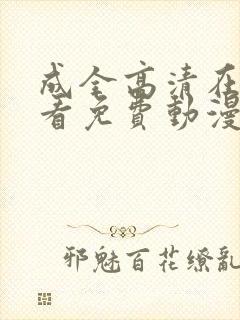 成全高清在
看免费動漫
邪魅百花缭亂